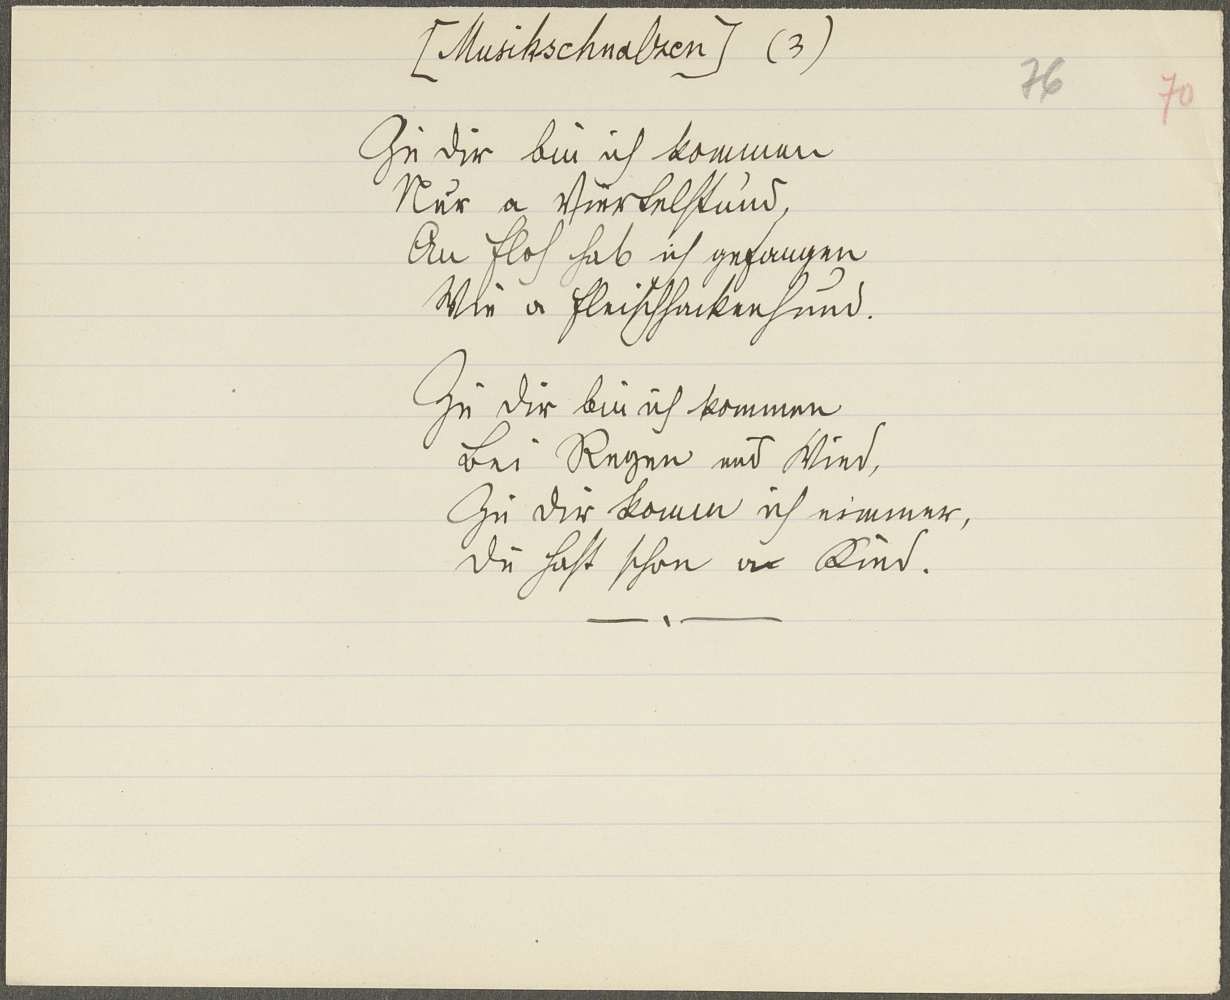 [Musikschnalzen] (3)
76
70
Zu dir bin ich kommen
Nur a Viertelstund,
An Floh hab ich gefangen
Wie a Fleischhackerhund.
Zu dir bin ich kommen
Bei Regen und Wind,
Zu dir komm ich nimmer,
Du hast schon a Kind.